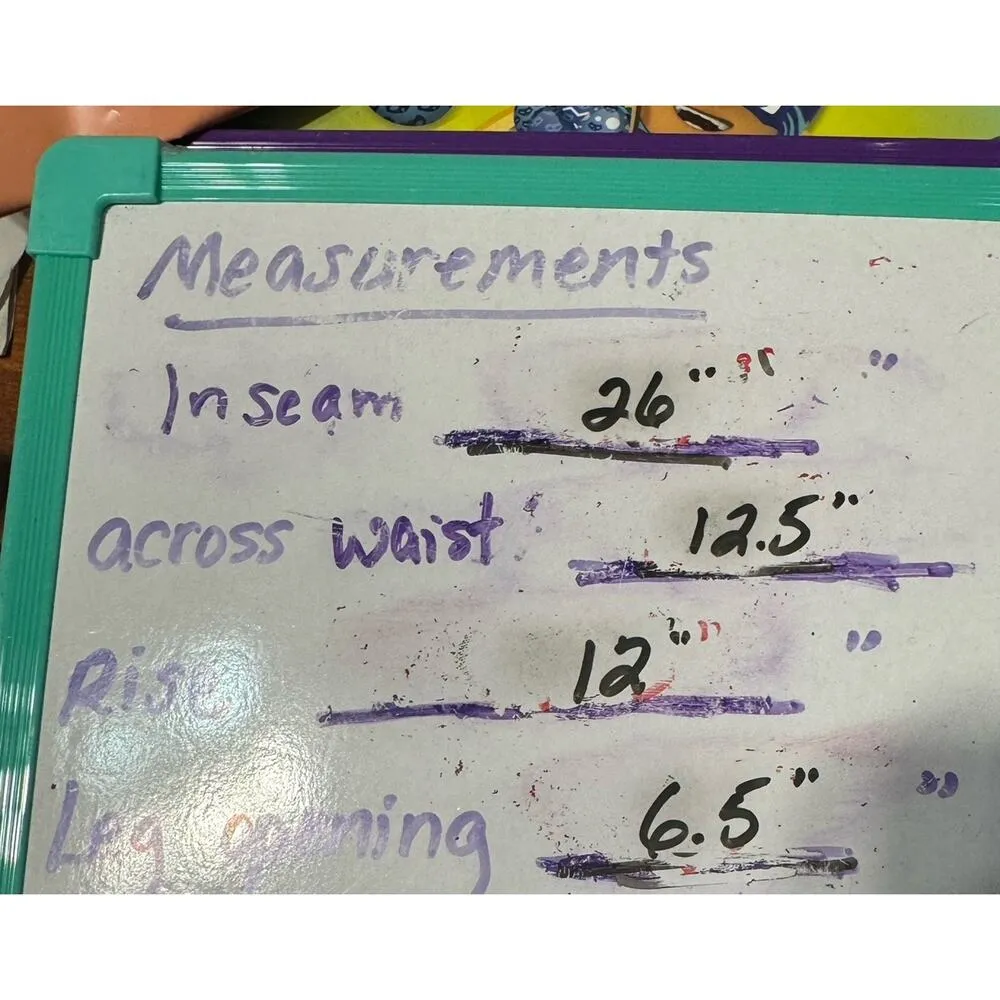 Measurements
Inseam 26"
across waist 12.5"
Rise 12"
Leg opening 6.5"